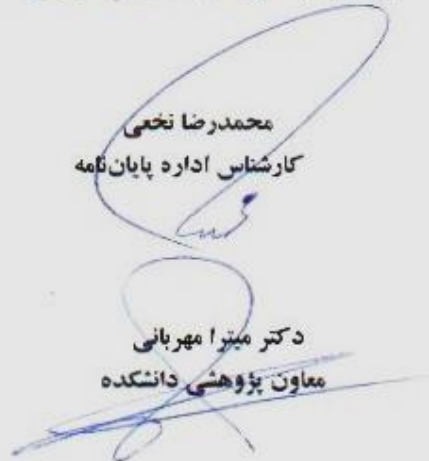 محمدرضا نخعی
کارشناس اداره پایان‌نامه
دکتر میترا مهربانی
معاون پژوهشی دانشکده